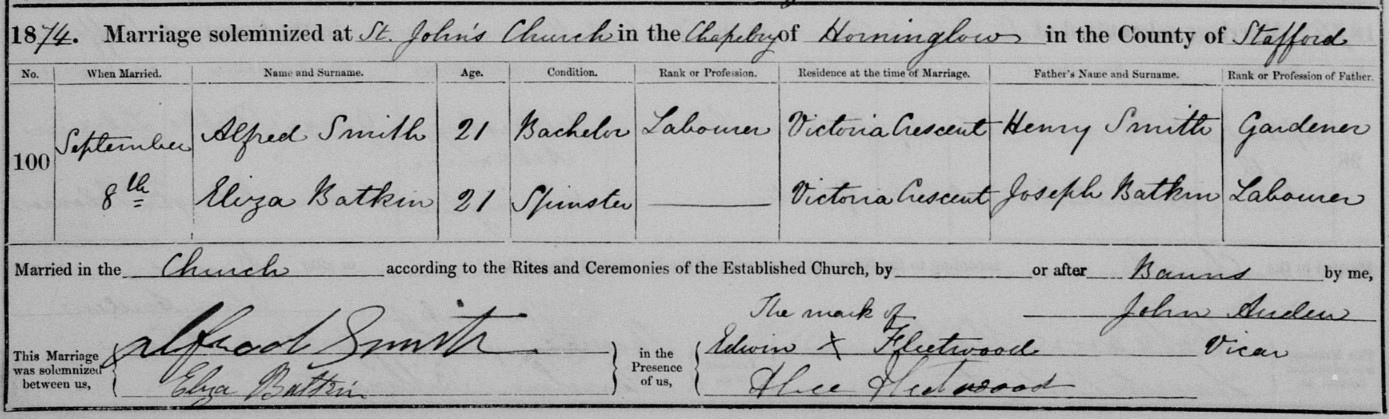 1874. Marriage solemnized at St. John's Church in the Chapelry of Horninglow in the County of Stafford
No. When Married. Name and Surname. Age. Condition. Rank or Profession. Residence at the time of Marriage. Father's Name and Surname. Rank or Profession of Father.
100 September 8th
Alfred Smith 21 Bachelor Labourer Victoria Crescent Henry Smith Gardener
Eliza Batkin 21 Spinster Victoria Crescent Joseph Batkin Labourer
Married in the Church according to the Rites and Ceremonies of the Established Church, by or after Banns by me,
This Marriage was solemnized between us,
Alfred Smith
Eliza Batkin
in the Presence of us,
The mark of
Edwin X Fleetwood
Alice Fleetwood
John Auden
Vicar